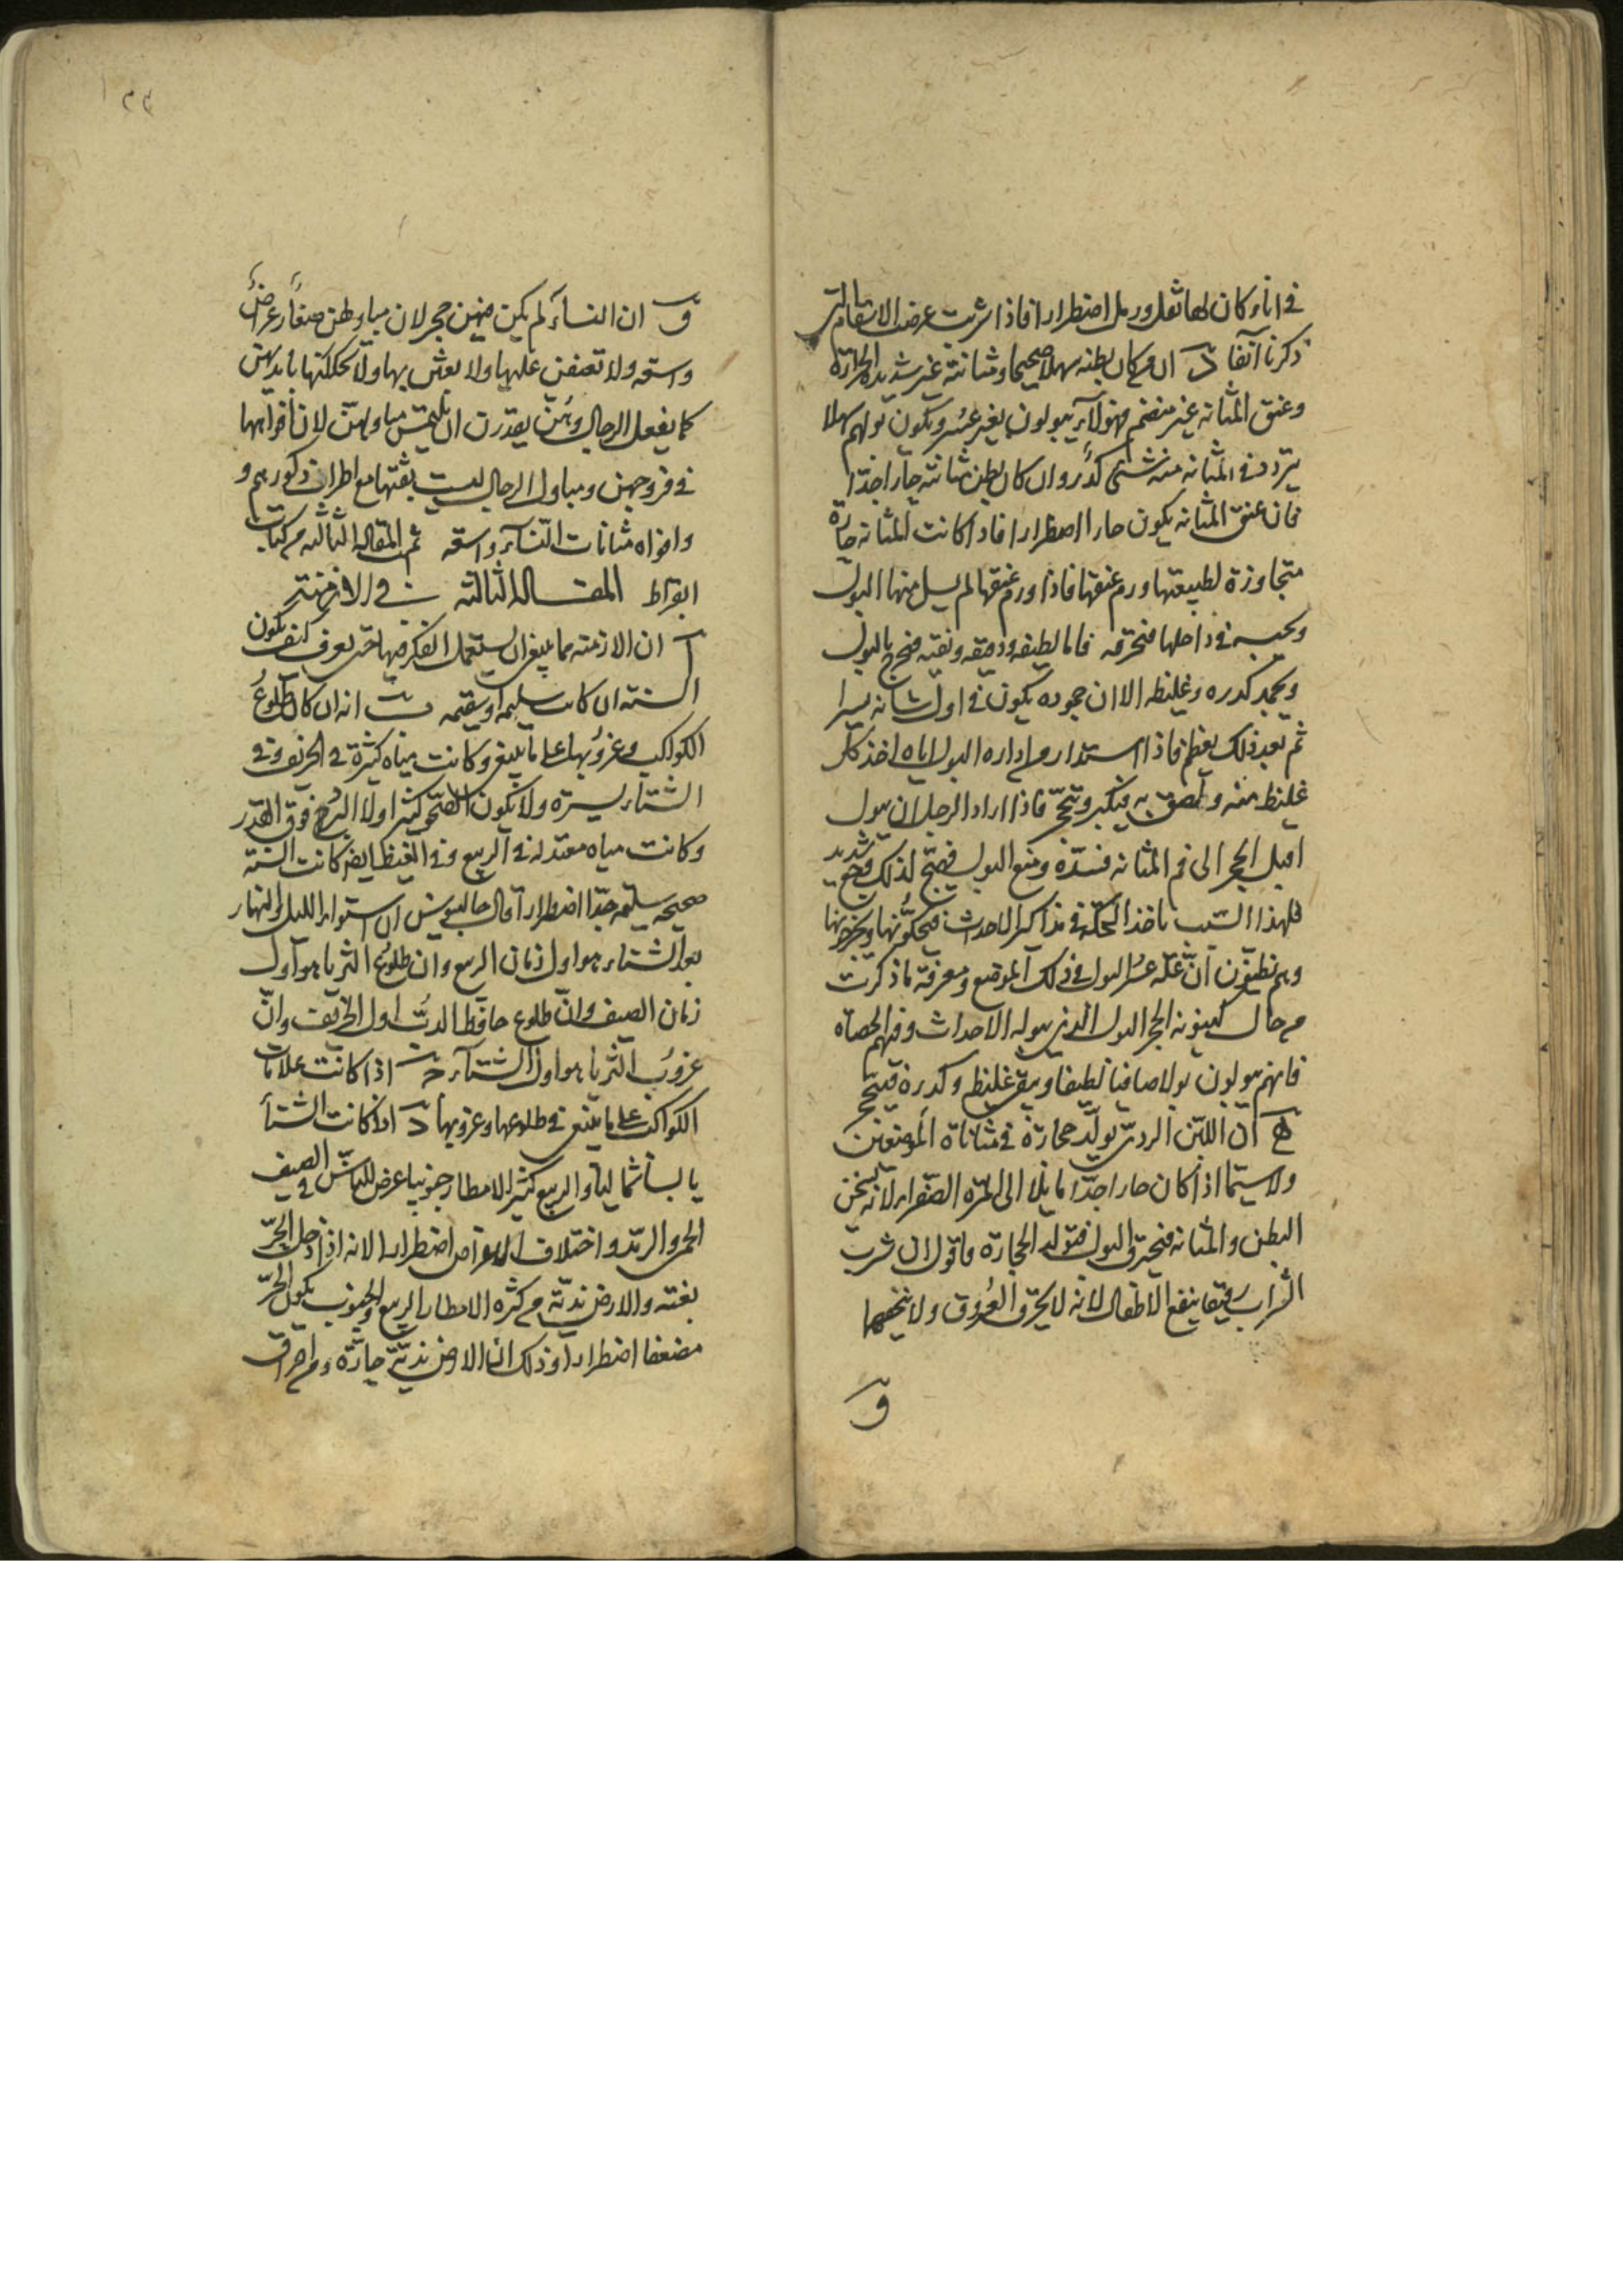 في اناء وكان لها ثفل ورمل اضطرارا فاذا شربت عرضت الاسقام التي
ذكرنا آنفا د ان من كان بطنه سهلا صحيحا ومثانته غير شديدة الحرارة
وعنق المثانه غير منضم فهولآء يبولون بغير عسر ويكون بولهم سهلا
يتردد في المثانه منه شئ كدر وان كان بطن مثانته حارا جدّا
فان عنق المثانه يكون حارا اضطرارا فاذا كانت المثانه حارة
متجاوزة لطبيعتها ورم عنقها فاذا ورم عنقها لم يسل منها البول
ويحبسه في داخلها فتحرقه فاما لطيفه ودقيقه ونقيه فخرج بالبول
ويجمد كدره وغليظه الا ان جموده يكون في اول شانه يسيرا
ثم بعد ذلك يعظم فاذا استدار من ادارة البول اياه اخذ كل
غليظ منه ولصق به فيكبر وتحجّر فاذا اراد الرجل ان يبول
اقبل الحجر الى فم المثانه فسدّه ومنع البول فهيّج لذلك وجع شديد
فلهذا السبب تاخذ الحكّة في مذاكير الاحداث فيحكّونها ويخرجونها
وهم يظنون انّ علّة عسر البول في ذلك الموضع ومعرفة ما ذكرت
من حال كينونة الحجر البول الذي يبوله الاحداث وفيهم الحصاه
فانهم يبولون بولا صافيا لطيفا ويبقى غليظه وكدره فيتحجر
ه ان اللبن الردئ يولّد حجارة في مثانة المرضعين
ولا سيّما اذا كان حارا جدّا مايلا الى المرّه الصّفراء لانه يسخن
البطن والمثانه فيحترق البول فتولد الحجارة واقول ان شرب
الشراب رقيقا ينفع الاطفال لانه لا يحرّق العروق ولا يجففها
و
و ان النسآء لم يكن فيهن حجر لان مباولهن صغار عراض
واسعه ولا تعفن عليها ولا يعبثن بها ولا يحككنها بايديهن
كما يفعل الرجال وهُنّ يقدرن ان يلمس مباولهنّ لان افواهها
في فروجهن ومباول الرجال ليست بثقبها مع اطراف ذكورهم و
وافواه مثانات النّسآء واسعه تم المقاله الثالثه من كتاب
ابقراط المقــاله الثالثه في الازمنة
آ ان الازمنه مما ينبغي ان يستعمل الفكر فيها حتى يعرف كيف يكون
السنه ان كانت سليمه او سقيمه ب انه ان كان طلوع
الكواكب وغروبها على ما ينبغي وكانت مياه كثيرة في الخريف وفي
الشتاء يسيرة ولا يكون الصّحو كثيرا ولا البرد فوق القدر
وكانت مياه معتدله في الربيع وفي القيظ ايضا كانت السنة
صحيحه سليمه جدّا اضطرارا قال جالينوس ان استواء الليل والنهار
بعد الشتاء هو اول زمان الربيع وان طلوع الثريا هو اول
زمان الصيف وان طلوع حافظ الدبّ اول الخريف وانّ
غروب الثريا هو اول الشتآء ج اذا كانت علامات
الكواكب على ما ينبغي في طلوعها وغروبها د اذا كانت الشتاء
يابسا شماليا والربيع كثير الامطار جنوبيا عرض للناس في الصيف
الحمى والرمد واختلاف الاعراس اضطرارا لانه اذا دخل الحرّ
بغته والارض نديّه من كثره الامطار الربيع والجنوب يكون الحرّ
مضعفا اضطرارا وذلك ان الارض نديّة حارّة ومن احراق